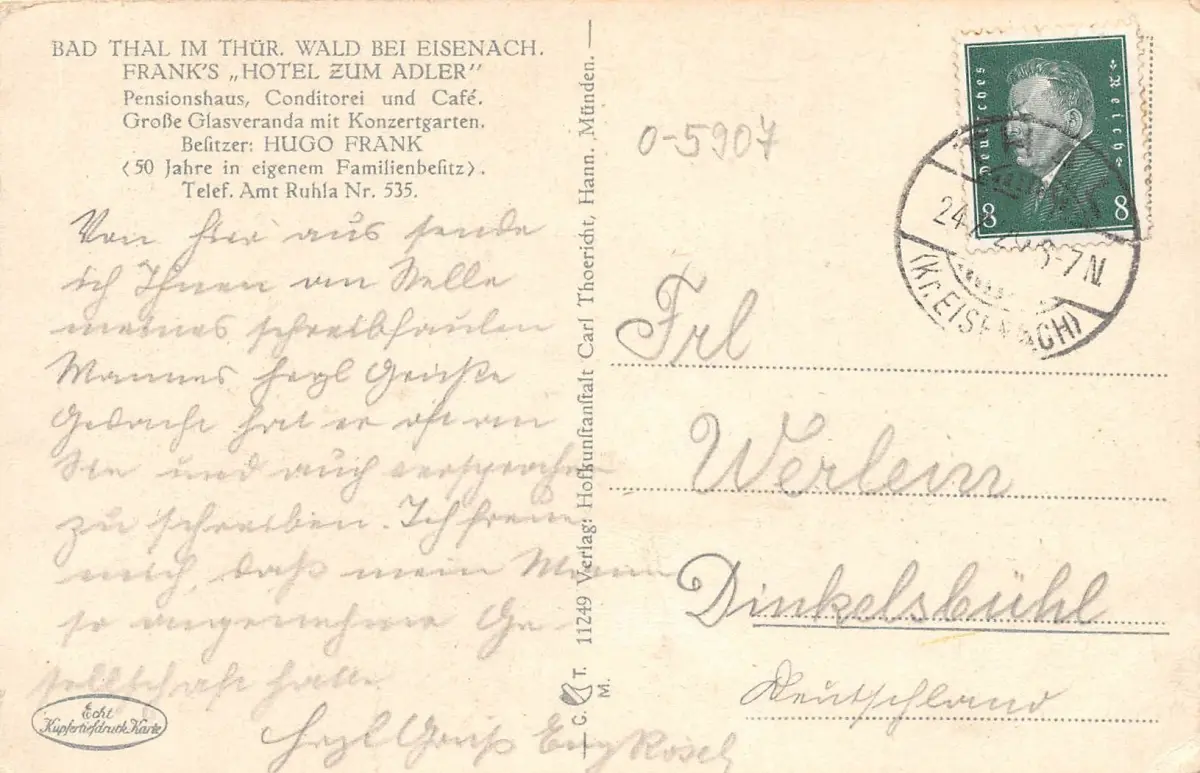 BAD THAL IM THÜR. WALD BEI EISENACH.
FRANK'S „HOTEL ZUM ADLER"
Pensionshaus, Conditorei und Café.
Große Glasveranda mit Konzertgarten.
Beſitzer: HUGO FRANK
(50 Jahre in eigenem Familienbeſitz).
Telef. Amt Ruhla Nr. 535.
Von hier aus sende
ich Ihnen an Stelle
meines schreibfaulen
Mannes herzl Grüße
Gedacht hat er oft an
Sie und auch versprochen
zu schreiben. Ich freue
mich, daß mein Mann
so angenehme Ge-
sellschaft hatte
herzl Gruß
Echt
Kupfertiefdruck Karte
C. T. M. 11249 Verlag: Hofkunſtanſtalt Carl Thoericht, Hann. Münden.
0-5907
Deutsches Reich
8 8
24. 6-7 N.
(Kr. EISENACH)
Frl
Werlein
Dinkelsbühl
Deutschland